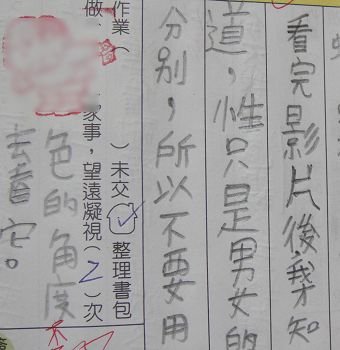 看完影片後我才知
道，性只是男女的
分別，所以不要用
作業（ ）未交 整理書包
做家事，望遠凝視（2）次
色的角度
去看它。